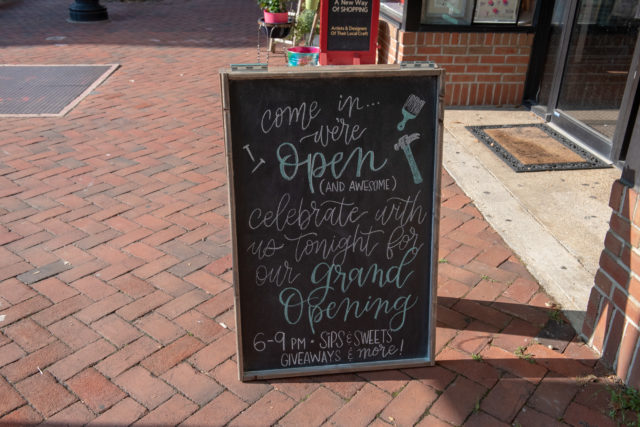 A New Way
Of SHOPPING
Artists & Designers
Of Their Local Craft
come in...
we're
open
(AND AWESOME)
celebrate with
us tonight for
our grand
opening
6-9 PM • SIPS & SWEETS
GIVEAWAYS & more!